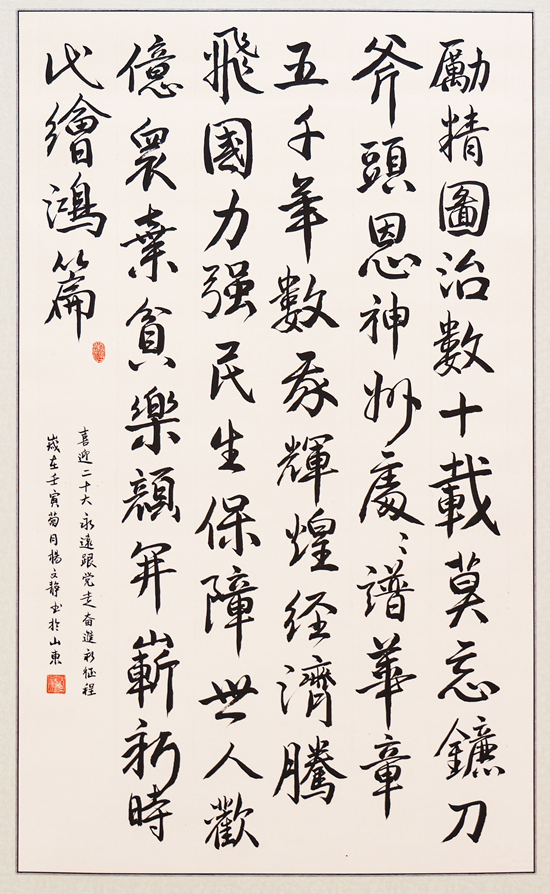 勵精圖治數十載莫忘鐮刀
斧頭恩神州處々譜華章
五千年數我輝煌經濟騰
飛國力强民生保障世人歡
億衆棄貧樂顔開嶄新時
代繪鴻篇
喜迎二十大永遠跟党走奋進新征程
歲在壬寅菊月楊文静书於山東